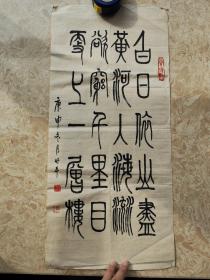 白日依山盡
黃河入海流
欲窮千里目
更上一層樓
庚申